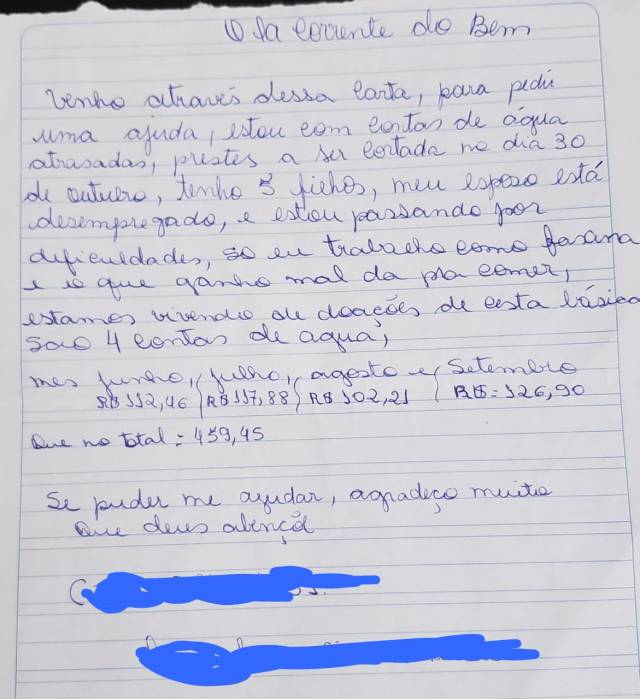 O Sa corrente do Bem
Venho através dessa carta, para pedir
uma ajuda, estou com contas de água
atrasadas, prestes a ser cortada no dia 30
de outubro, tenho 3 filhos, meu esposo está
desempregado, e estou passando por
dificuldades, so eu trabalho como faxina
e o que ganho mal da pra comer,
estamos vivendo de doações de cesta básica
Sao 4 contas de agua,
mes junho, julho, agosto e Setembro
R$ 112,46 R$ 117,88 R$ 102,21 R$= 126,90
Que no total: 459,45
Se puder me ajudar, agradeço muito
Que deus abençõe